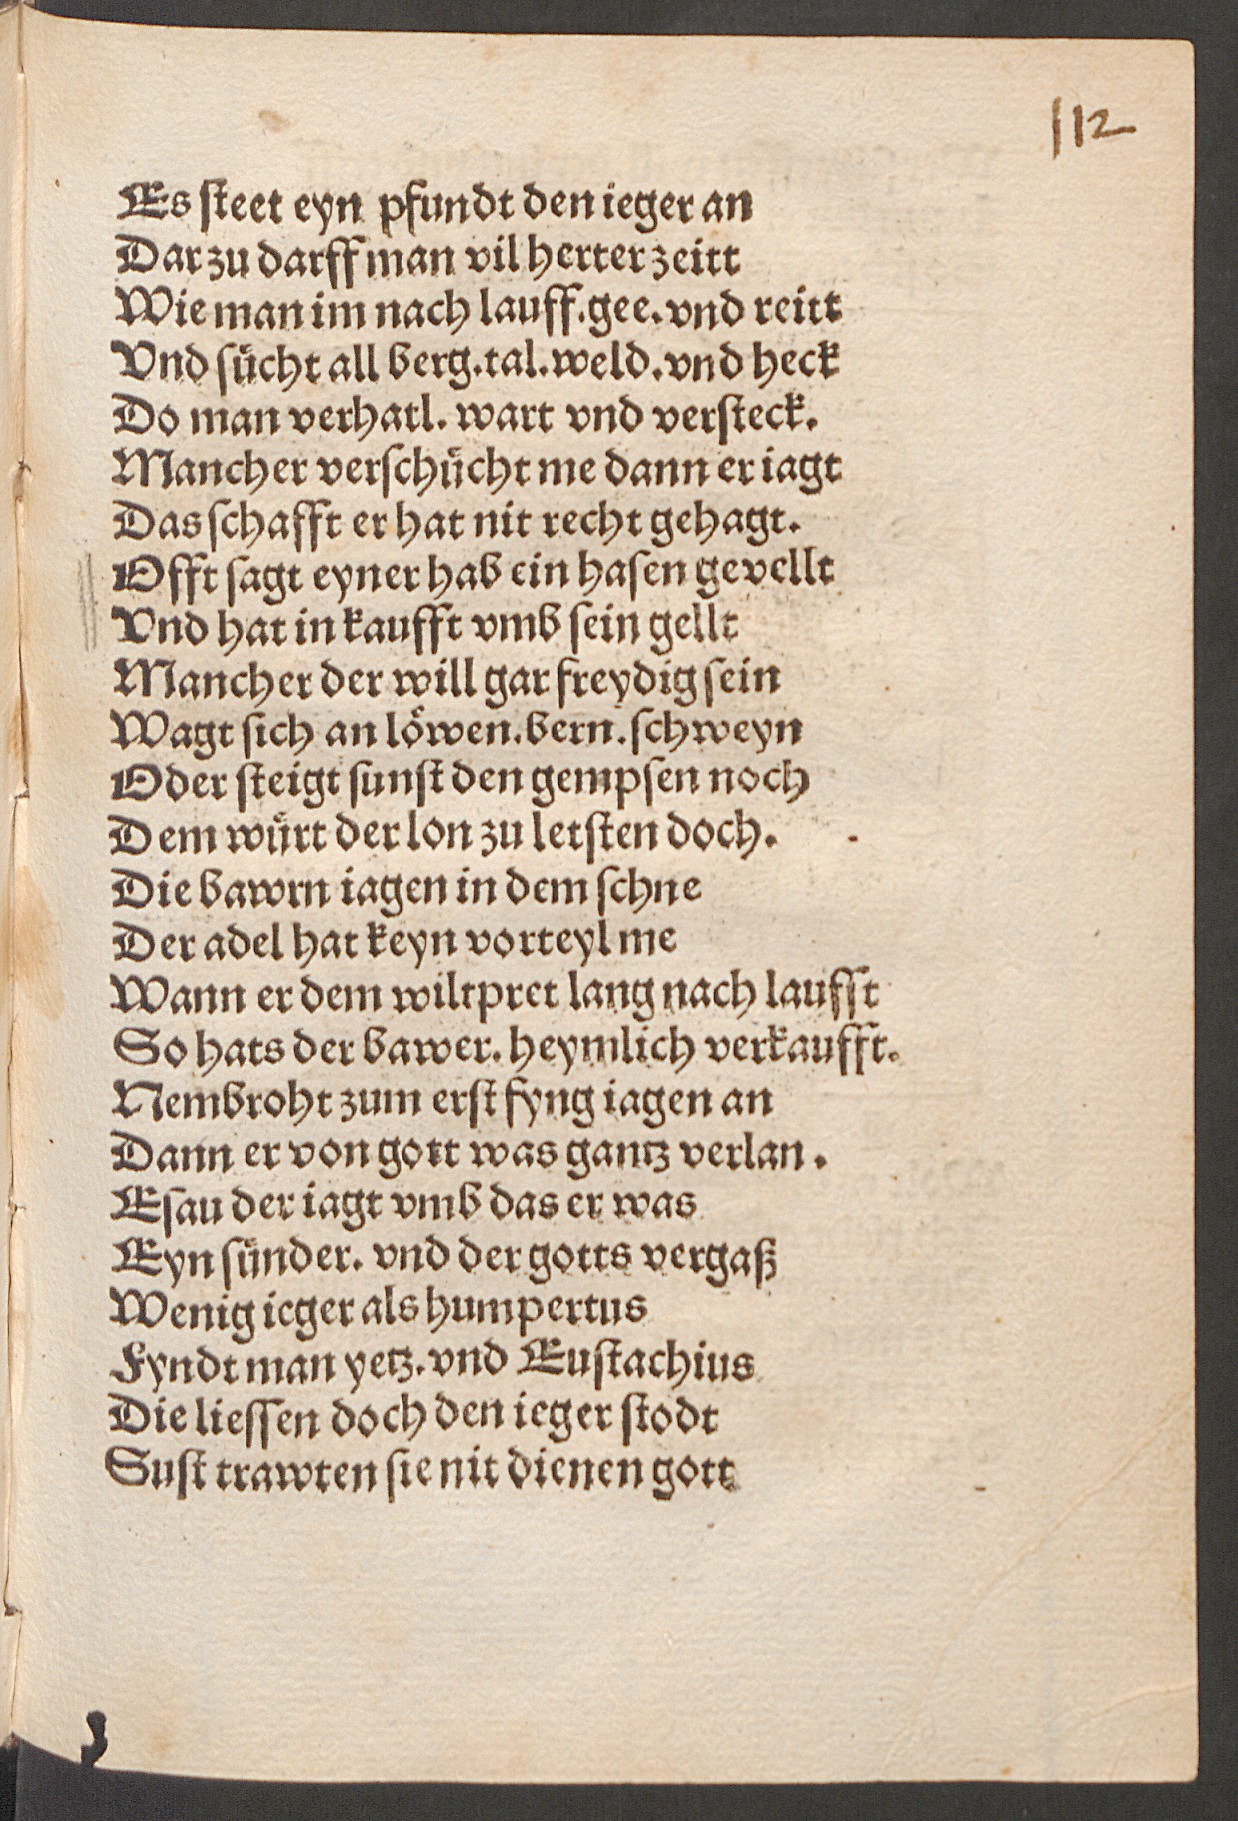 112
Es steet eyn pfundt den ieger an
Dar zu darff man vil herter zeitt
Wie man im nach lauff. gee. vnd reitt
Vnd sücht all berg. tal. weld. vnd heck
Do man verhatl. wart vnd versteck.
Mancher verschücht me dann er iagt
Das schafft er hat nit recht gehagt.
Offt sagt eyner hab ein hasen gevellt
Vnd hat in kaufft vmb sein gellt
Mancher der will gar freydig sein
Wagt sich an löwen. bern. schweyn
Oder steigt sunst den gempsen noch
Dem würt der lon zu letsten doch.
Die bawrn iagen in dem schne
Der adel hat keyn vorteyl me
Wann er dem wiltpret lang nach laufft
So hats der bawer. heymlich verkaufft.
Nembroht zum erst fyng iagen an
Dann er von gott was gantz verlan.
Esau der iagt vmb das er was
Eyn sünder. vnd der gotts vergaß
Wenig ieger als humpertus
Fyndt man yetz. vnd Eustachius
Die liessen doch den ieger stodt
Sust trawten sie nit dienen gott